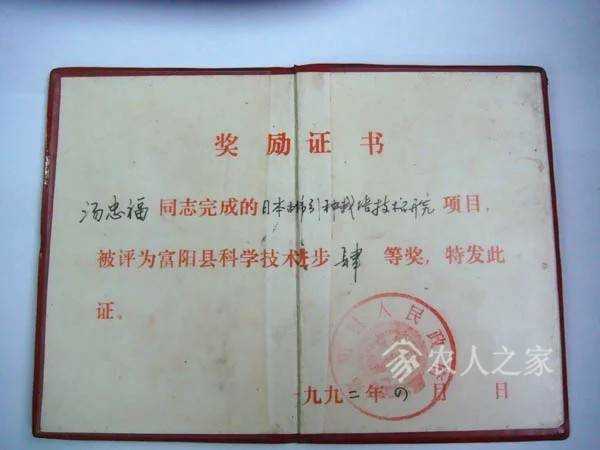 奖励证书
汤忠福 同志完成的日本 引种栽培技术研究 项目,
被评为富阳县科学技术进步 肆 等奖,特发此
证。
人民政
农人之家
一九九二年 四 月 日